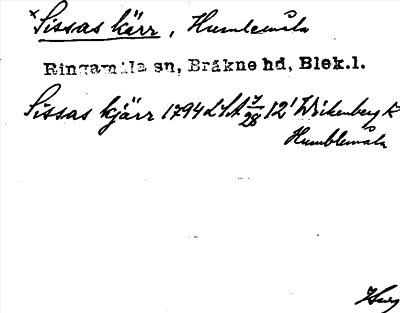 *Sissas kärr, Humlemåla
Ringamåla sn, Bräkne hd, Blek.l.
Sissas kjärr 1794 LSA 7/28 12'
Humblemåla